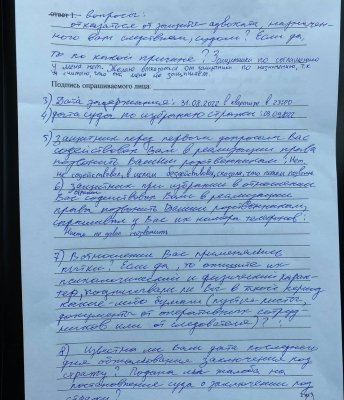 ответ 1. вопросы:
отказаться от защитн адвоката, назначен-
ного вам следствием, судом? Если да,
то по какой причине? Защитника по соглашению
у меня нет. Хочу отказаться от защитника по назначению, т.к.
я считаю, что он меня не защищает.
Подпись опрашиваемого лица:
3) Дата задержания: 31.08.2022 в квартире в
4) дата суда по избранию стражи:
5) Защитник перед первым допросом Вас
содействовал Вам в реализации права
позвонить Вашим родственникам? Нет,
не содействовал, а
6) Защитник при избрании в отношении
Вас стражи содействовал Вам в реализации
права позвонить Вашим родственникам,
спрашивал у Вас их номера телефонов:
Никто не давал позвонить
7) В отношении Вас применялись
пытки? Если да, то опишите их
психологический и физический харак-
тер, подписывали ли Вы в такой период
какие-либо бумаги (чистые листы,
документы от оперативных сотруд-
ников или от следователя)?
8) Известна ли Вам дата последнего
дня обжалования заключения под
стражу? Подана ли жалоба на
постановление суда о заключении под
стражу?